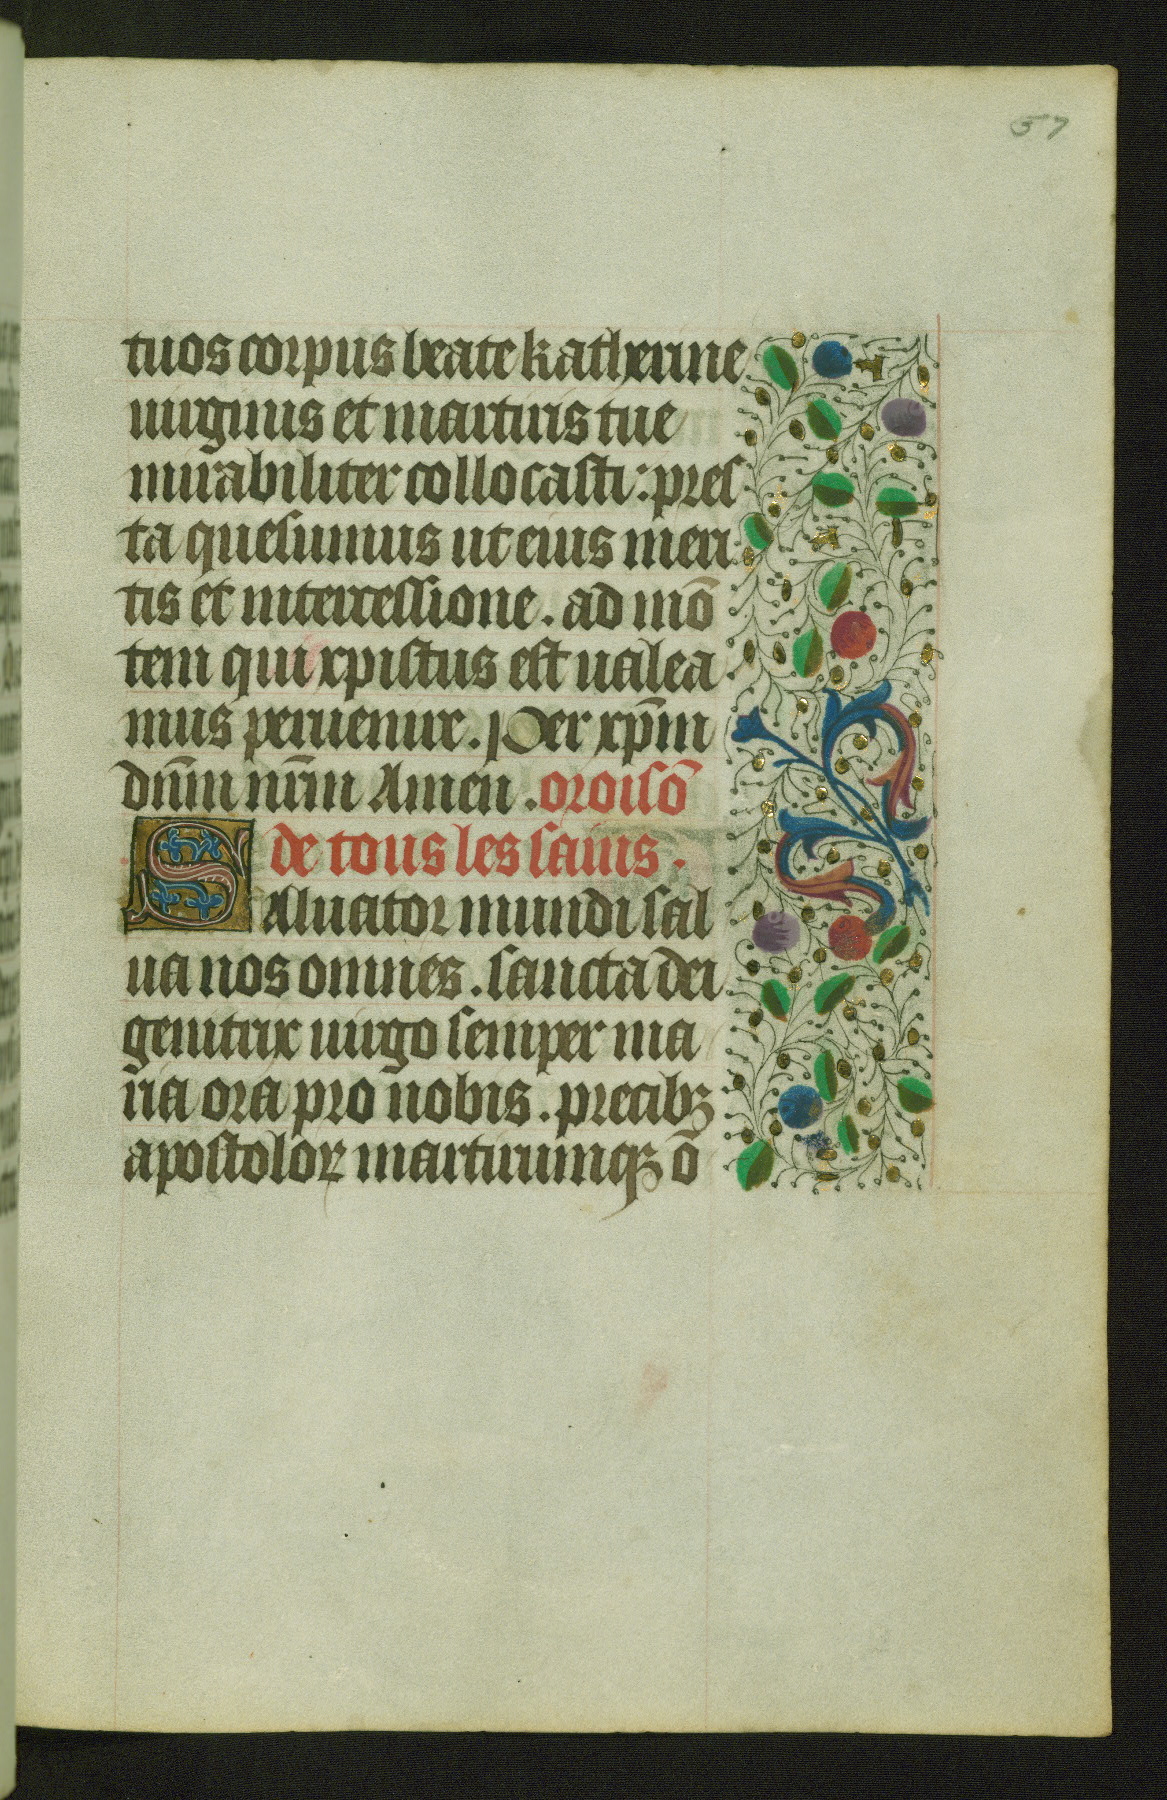 57
tuos corpus beate katherine
uirginis et martiris tue
mirabiliter collocasti: pres
ta quesumus ut eius meri
tis et intercessione. ad mō
tem qui xpistus est ualea
mus peruenire. Per xp̄m
dn̄m nr̄m Amen. oroisō
de tous les sains.
Saluator mundi sal
ua nos omnes. sancta dei
genitrix uirgo semper ma
ria ora pro nobis. precibꝫ
apostoloꝝ martirumqꝫ ō